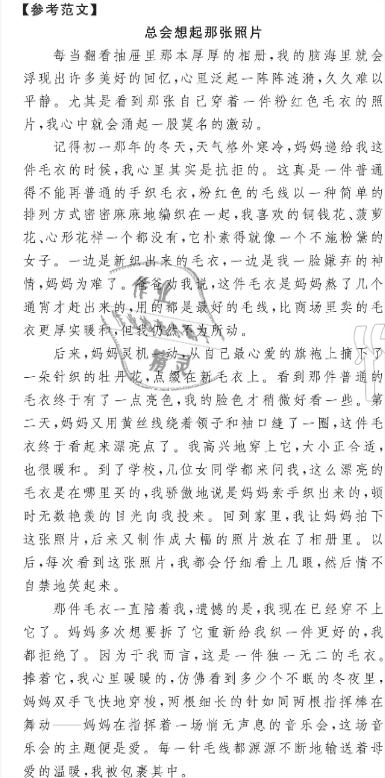 【参考范文】
总会想起那张照片
每当翻看抽屉里那本厚厚的相册,我的脑海里就会
浮现出许多美好的回忆,心里泛起一阵阵涟漪,久久难以
平静。尤其是看到那张自己穿着一件粉红色毛衣的照
片,我心中就会涌起一股莫名的激动。
记得初一那年的冬天,天气格外寒冷,妈妈递给我这
件毛衣的时候,我心里其实是抗拒的。这真是一件普通
得不能再普通的手织毛衣,粉红色的毛线以一种简单的
排列方式密密麻麻地编织在一起,我喜欢的铜钱花、菠萝
花、心形花样一个都没有,它朴素得就像一个不施粉黛的
女子。一边是新织出来的毛衣,一边是我一脸嫌弃的神
情,妈妈为难了。爸爸劝我说,这件毛衣是妈妈熬了几个
通宵才赶出来的,用的都是最好的毛线,比商场里卖的毛
衣更厚实暖和,但我仍然不为所动。
后来,妈妈灵机一动,从自己最心爱的旗袍上摘下了
一朵针织的牡丹花,点缀在新毛衣上。看到那件普通的
毛衣终于有了一点亮色,我的脸色才稍微好看一些。第
二天,妈妈又用黄丝线绕着领子和袖口缝了一圈,这件毛
衣终于看起来漂亮点了。我高兴地穿上它,大小正合适,
也很暖和。到了学校,几位女同学都来问我,这么漂亮的
毛衣是在哪里买的,我骄傲地说是妈妈亲手织出来的,顿
时无数艳羡的目光向我投来。回到家里,我让妈妈拍下
这张照片,后来又制作成大幅的照片放在了相册里。以
后,每次看到这张照片,我都会仔细看上几眼,然后情不
自禁地笑起来。
那件毛衣一直陪着我,遗憾的是,我现在已经穿不上
它了。妈妈多次想要拆了它重新给我织一件更好的,我
都拒绝了。因为于我而言,这是一件独一无二的毛衣。
捧着它,我心里暖暖的,仿佛看到多少个不眠的冬夜里,
妈妈双手飞快地穿梭,两根细长的针如同两根指挥棒在
舞动——妈妈在指挥着一场悄无声息的音乐会,这场音
乐会的主题便是爱。每一针毛线都源源不断地输送着母
爱的温暖,我被包裹其中。